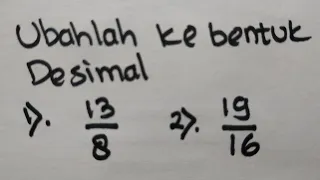 Ubahlah ke bentuk
Desimal
1). 13/8 2). 19/16